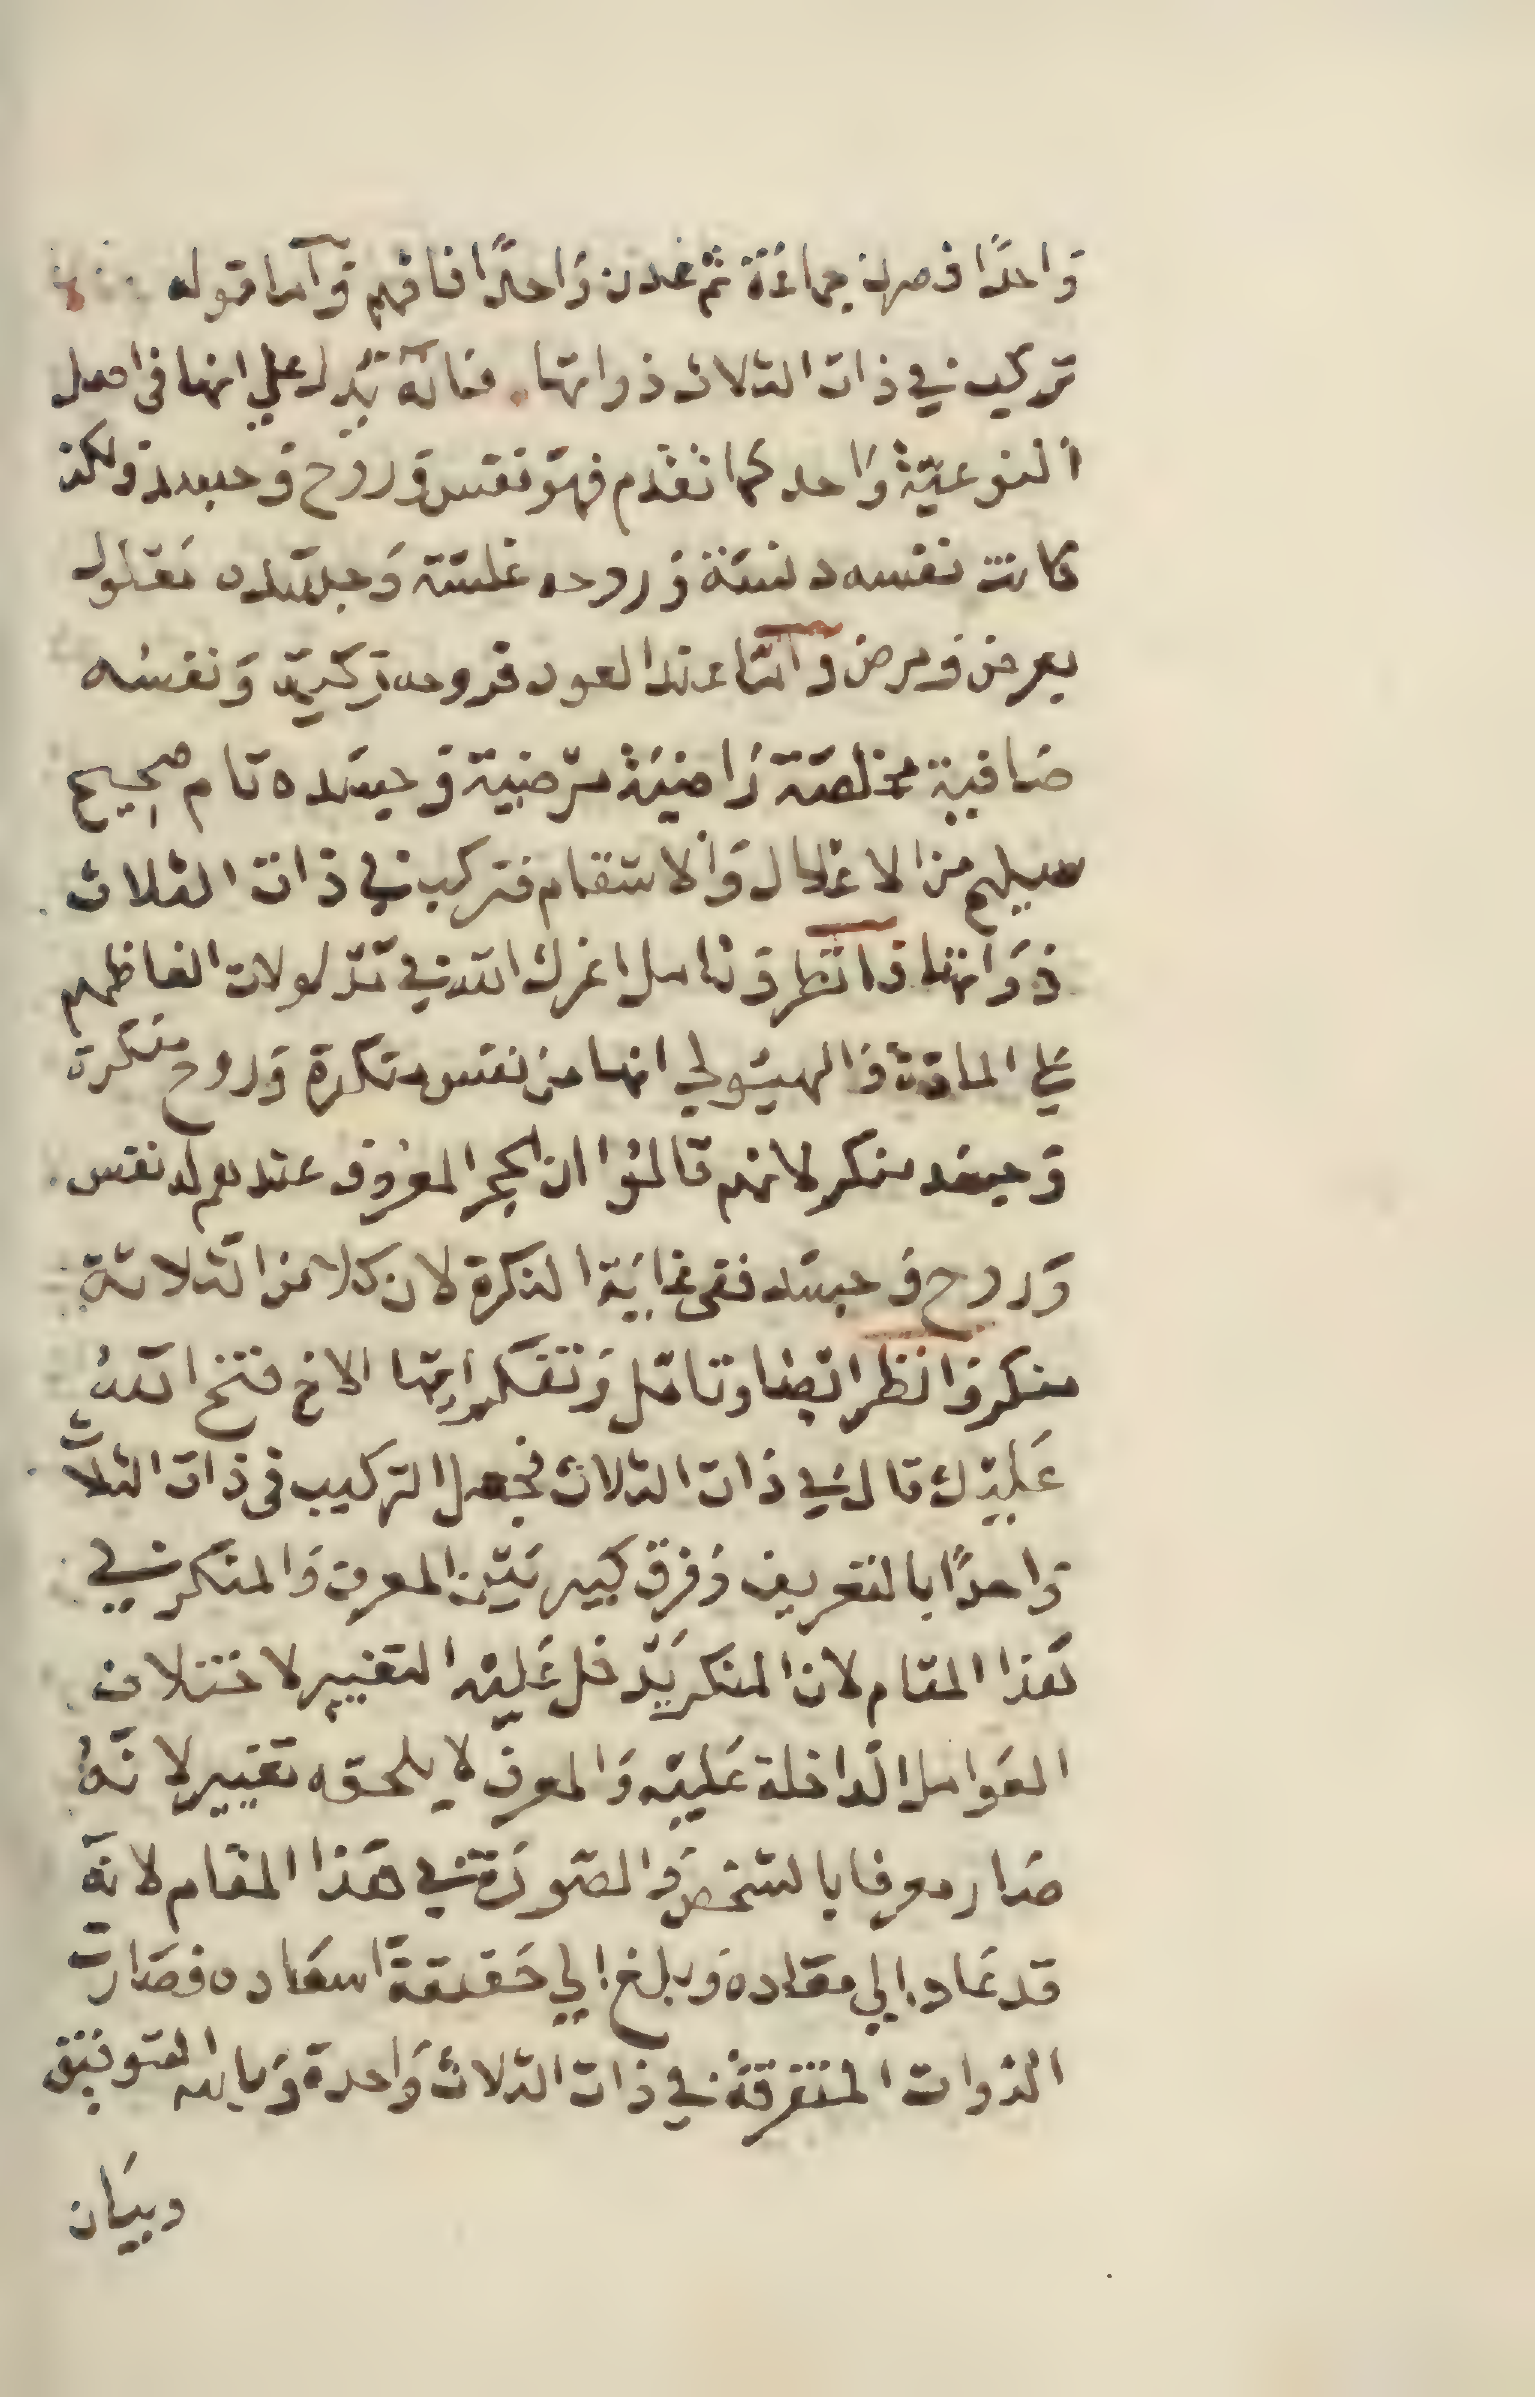 وَاحدًا فصرن جماعَة ثم عُدن وَاحدًا فافهم وَآما قوله
تركيب في ذات الثلاث ذواتها. فانه يَدل علي انها في اصل
النوعيّة وَاحد كما تقدم فهوَ نفس وَروح وَجسد وَلكن
كانت نفسه دنسَة وَروحه غلسَة وَجسَده مَعلول
بعرض وَمرض وَامّا عند العود فروحه زكيّة وَنفسُه
صَافية مخلصَة رَاضيَة مرضية وَجسَده تام صحيح
سليم من الاعلال وَالاسقام فتركب في ذات الثلاث
ذوَاتها فانظر وَتامل اعزك الله في مَدلولات الفاظهم
علي المادة وَالهيُولي انها من نفس منكرة وَروح منكرة
وَجسَد منكر لانهم قالوُا ان الحجر المعرُوف عندهم له نفس
وَروح وَجسَد ففي غايَة النكرة لان كلا من الثلاثة
منكر وَانظر ايضا وتامّل وَتفكر ايها الاخ فتح اللهُ
عَليك قال في ذات الثلاث فجعل التركيب في ذات الثلاث
وَاحدًا بالتعريف وَفرق كبير بَين المعرف وَالمنكر في
هَذا المقام لان المنكر يَدخل عَليه التغيير لاختلاف
العَوامل الدَاخلة عَليه وَالمعرف لا يلحقه تغيير لانهُ
صَار معرفا بالشخص وَالصّورَة في هَذا المقام لانهَ
قد عَاد الي معَاده وَبلغ الي حَقيقة اسعَاده فصَارت
الذوات المتفرقة في ذات الثلاث وَاحدة وَبالله التوفيق
وبيَان